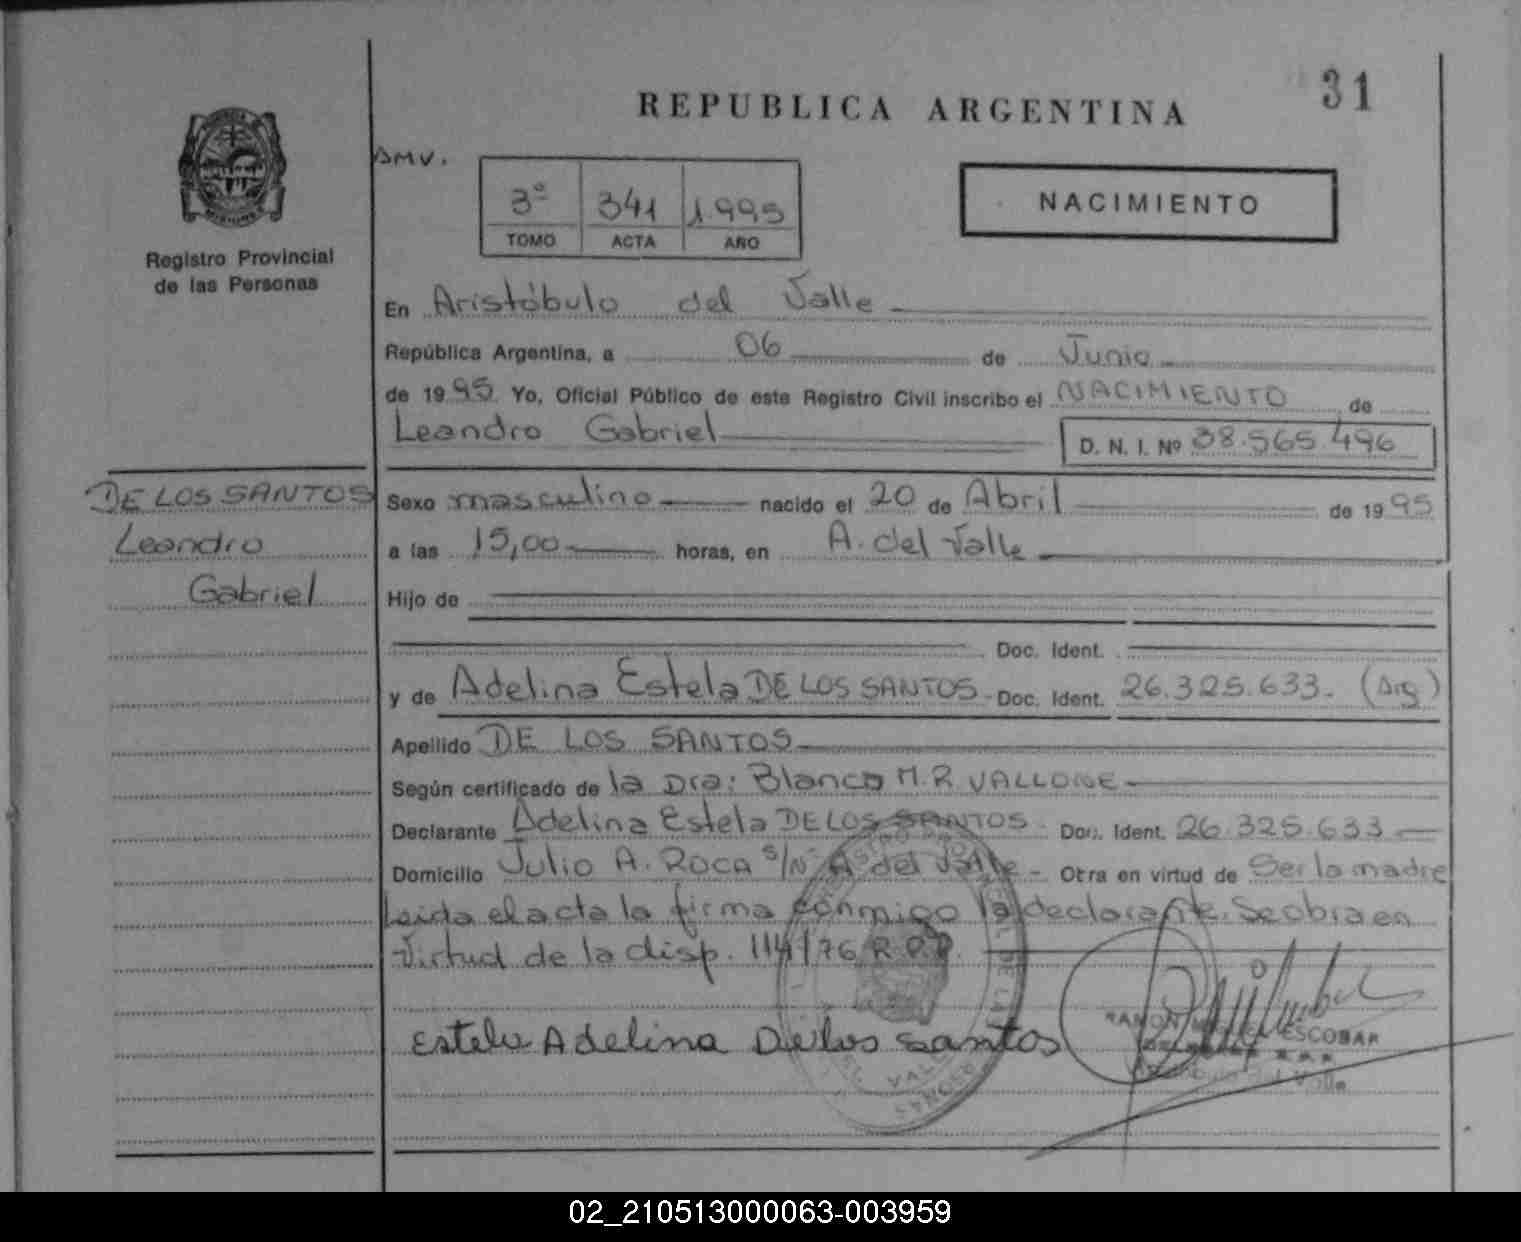 31
REPUBLICA ARGENTINA
Registro Provincial
de las Personas
AMV.
3º 341 1.995
TOMO ACTA AÑO
NACIMIENTO
En Aristóbulo del Valle
República Argentina, a 06 de Junio
de 1995 Yo, Oficial Público de este Registro Civil inscribo el NACIMIENTO de
Leandro Gabriel D. N. I. Nº 38.565.496
DE LOS SANTOS
Leandro
Gabriel
Sexo masculino nacido el 20 de Abril de 1995
a las 15,00 horas, en A. del Valle
Hijo de
Doc. Ident.
y de Adelina Estela DE LOS SANTOS - Doc. Ident. 26.325.633. (Arg)
Apellido DE LOS SANTOS
Según certificado de la Dra: Blanca M.R. VALLONE
Declarante Adelina Estela DE LOS SANTOS - Doc. Ident. 26.325.633
Domicilio Julio A. ROCA S/Nº A del Valle - Obra en virtud de Ser la madre
Leida el acta la firma conmigo la declarante. Se obra en
virtud de la disp. 114/76 R.P.P.
Estela Adelina De los santos
RAMON ESCOBAR
02_210513000063-003959